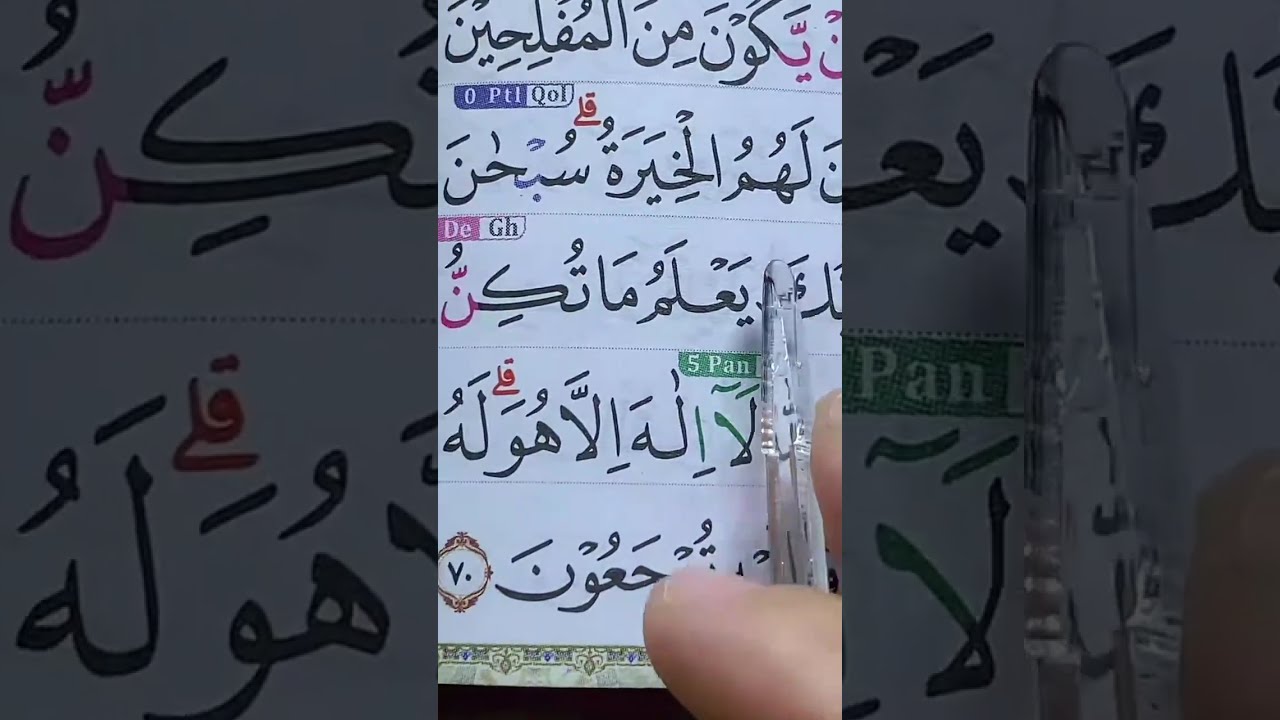 يَّكُوْنَ مِنَ الْمُفْلِحِيْنَ
0 Ptl Qol
لَهُمُ الْخِيَرَةُ ۗ سُبْحٰنَ
De Gh
يَعْلَمُ مَا تُكِنُّ
5 Pan
لَآ اِلٰهَ اِلَّا هُوَ ۗ لَهُ
تُرْجَعُوْنَ ٧٠